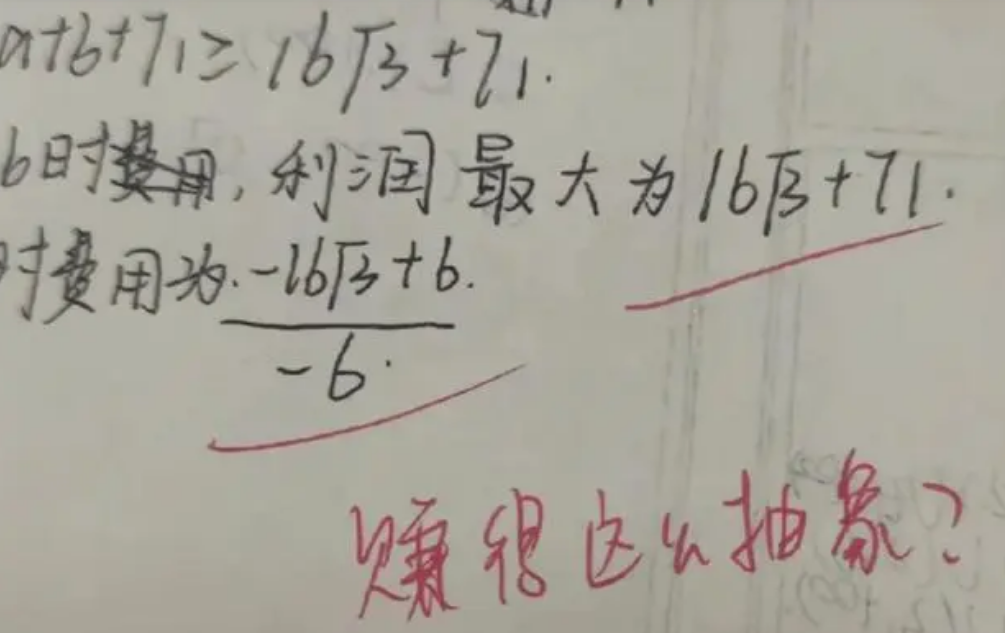 a+b+71≥16√3+71.
6时费用,利润最大为16√3+71.
时费用为.-16√3+6.
-6.
赚得这么抽象?